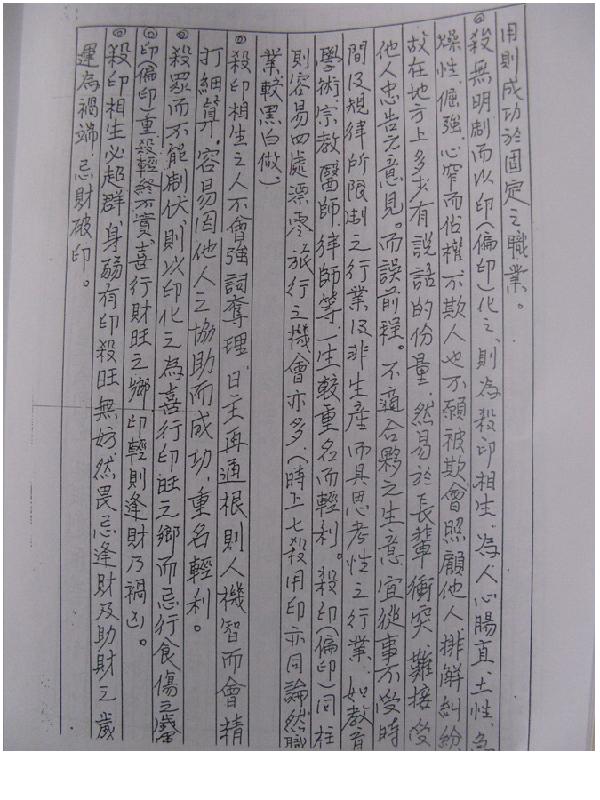 用則成功於固定之職業。
◎殺無明制而以印(偏印)化之、則為殺印相生、為人心腸直、土性、急
燥性、倔強、心窄而俗權、不欺人也不願被欺、會照顧他人、排解糾紛
故在地方上多半有說話的份量、然易於長輩衝突、難接受
他人忠告之意見。而誤前程。不適合夥之生意、宜從事不受時
間及規律所限制之行業及非生產而具思考性之行業、如教育
學術宗教、醫師、律師等、一生較重名而輕利。殺印(偏印)同柱
則容易四處漂零、旅行之機會亦多、(時上七殺用印亦同論然職
業較黑白做)。
◎殺印相生之人、不會強詞奪理、日主再通根、則人機智而會精
打細算、容易因他人之協助而成功、重名輕利。
◎殺眾而不能制伏則以印化之為喜行印旺之鄉而忌行食傷之歲
◎印(偏印)重殺輕終不貴、喜行財旺之鄉、印輕則逢財乃禍凶。
◎殺印相生必超群、身弱有印殺旺無妨、然畏忌逢財及助財之歲
運為禍端、忌財破印。